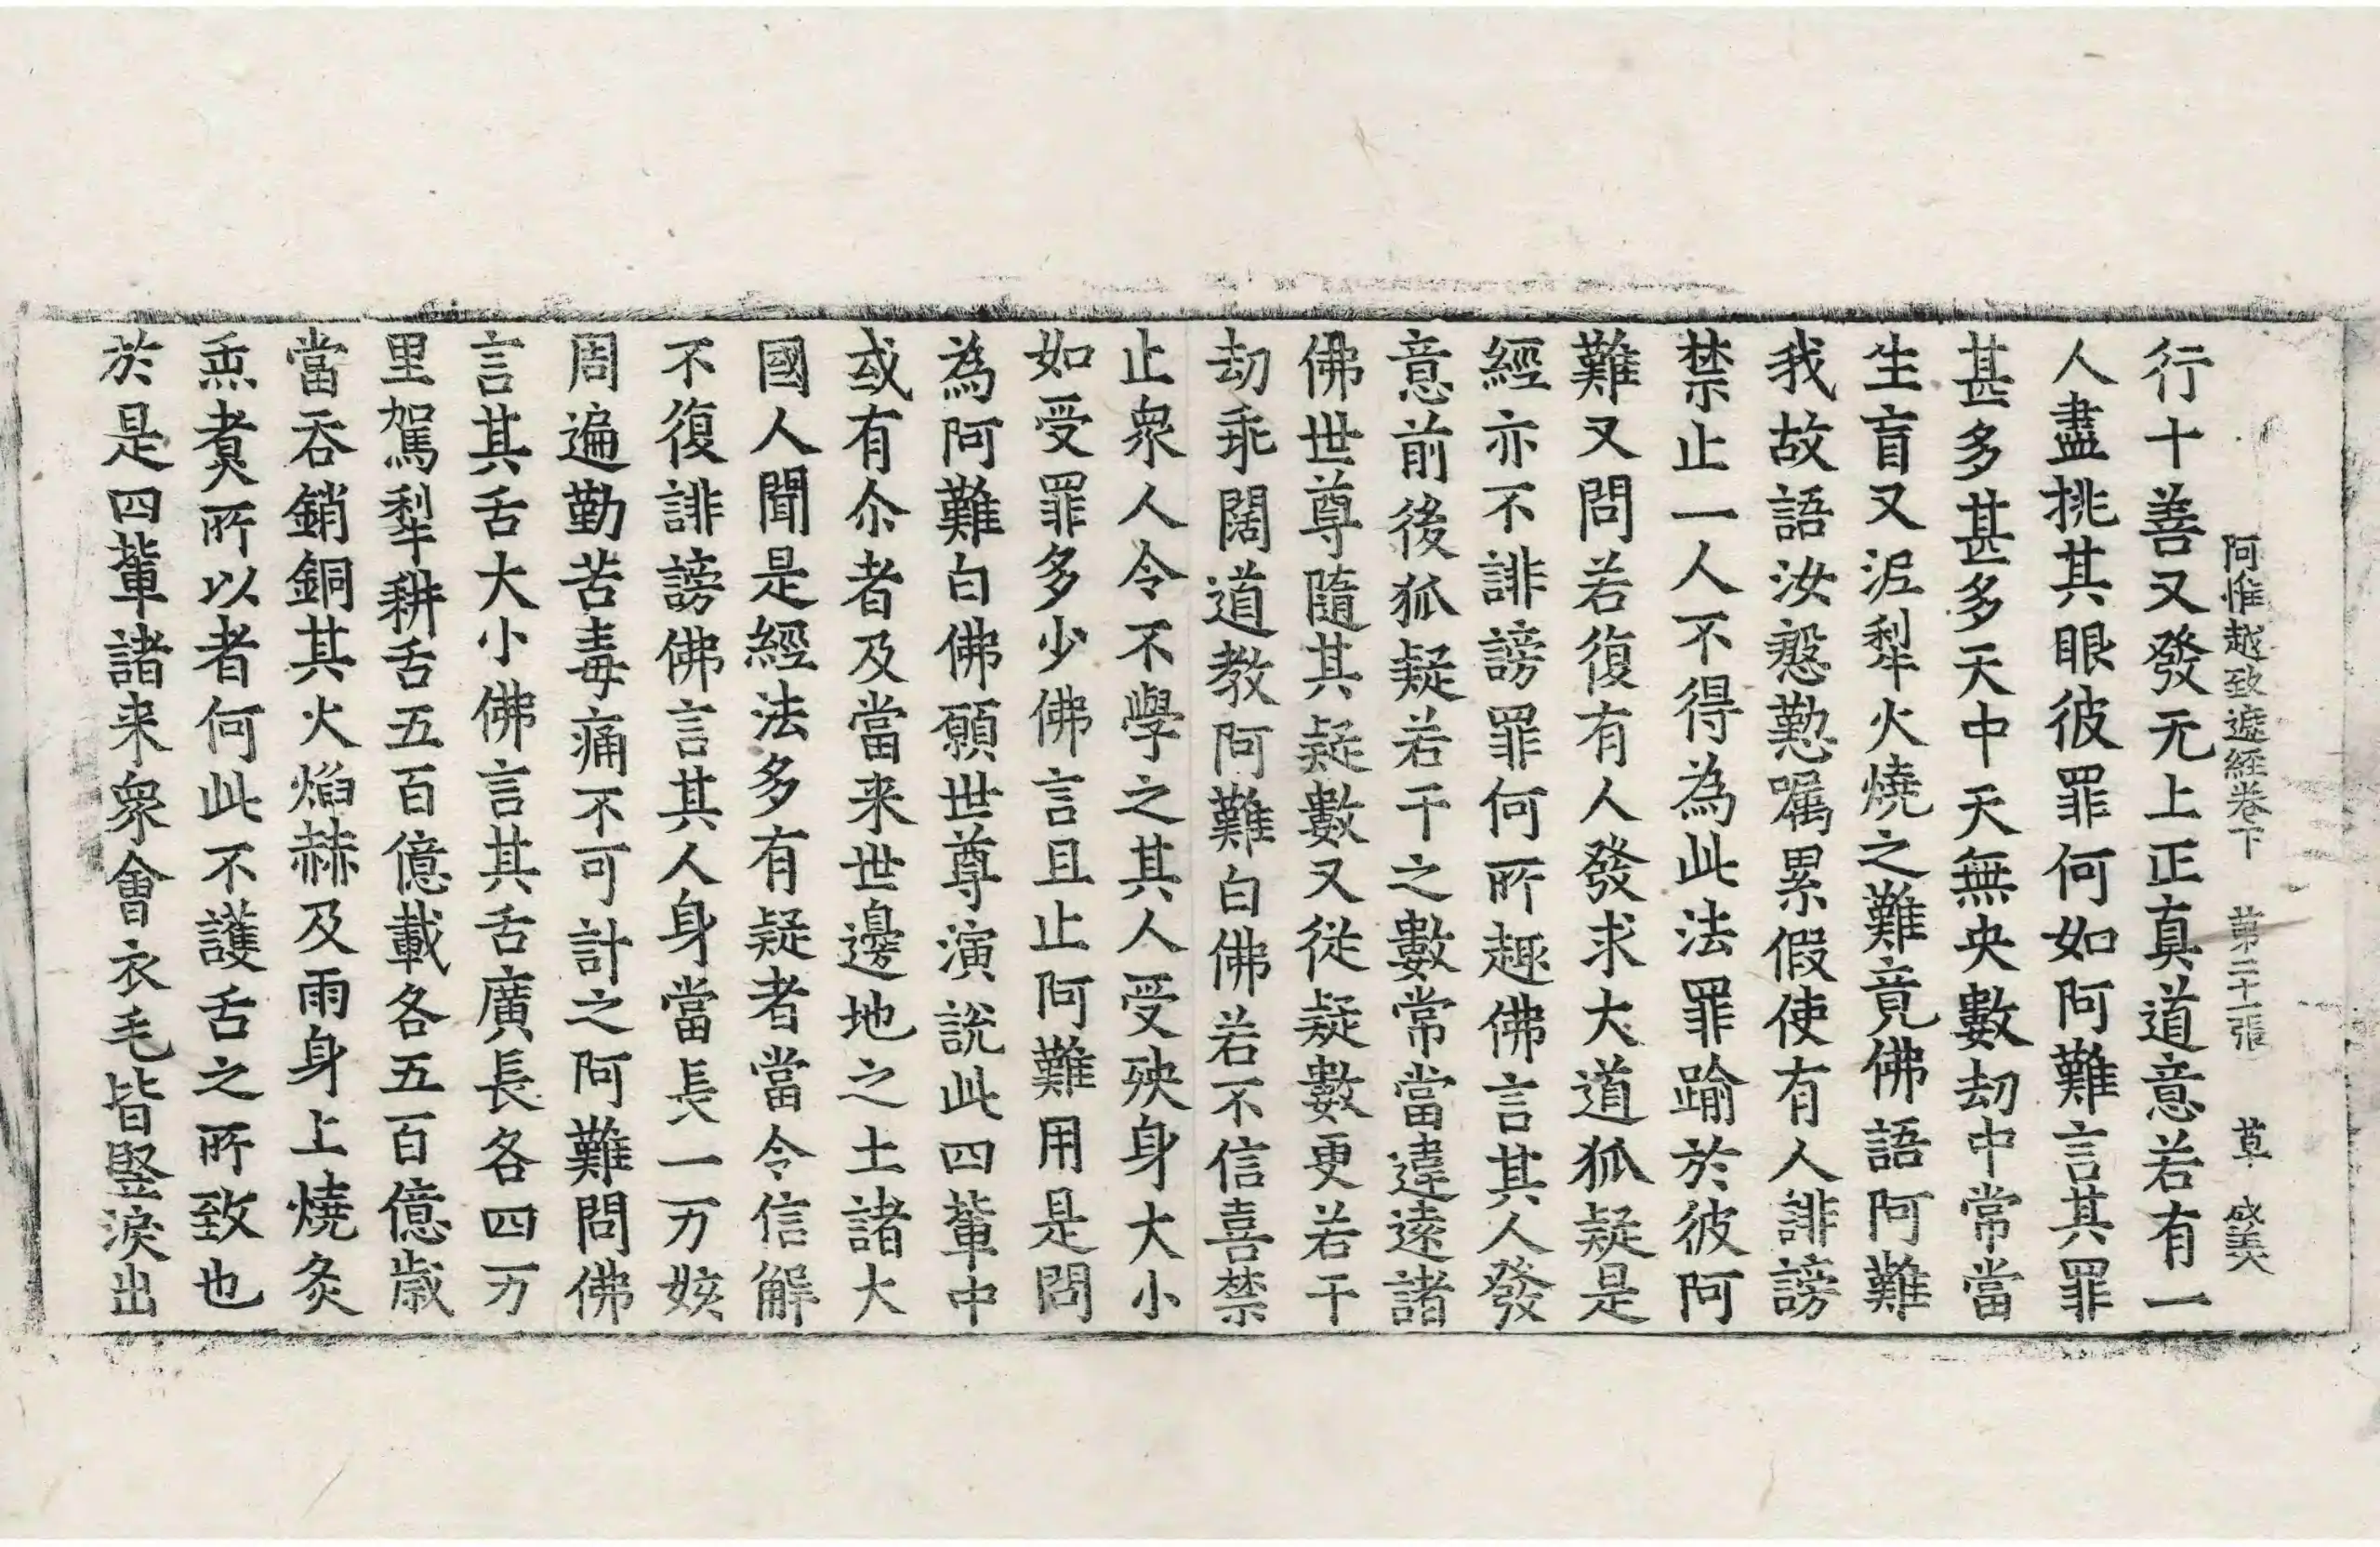 阿惟越致遮経卷下　第二十一張　草　成美
行十善又發无上正真道意若有一
人盡挑其眼彼罪何如阿難言其罪
甚多甚多天中天無央數劫中常當
生盲又泥犁火燒之難竟佛語阿難
我故語汝慇懃囑累假使有人誹謗
禁止一人不得為此法罪踰於彼阿
難又問若復有人發求大道狐疑是
經亦不誹謗罪何所趣佛言其人發
意前後狐疑若干之數常當違遠諸
佛世尊隨其疑數又從疑數更若干
劫乖闊道教阿難白佛若不信喜禁
止衆人令不學之其人受殃身大小
如受罪多少佛言且止阿難用是問
為阿難白佛願世尊演說此四輩中
或有尒者及當来世邊地之土諸大
國人聞是經法多有疑者當令信解
不復誹謗佛言其人身當長一万姟
周遍勤苦毒痛不可計之阿難問佛
言其舌大小佛言其舌廣長各四万
里駕犁耕舌五百億載各五百億歲
當吞銷銅其火焰赫及雨身上燒炙
焣煮所以者何此不護舌之所致也
於是四輩諸来衆會衣毛皆竪淚出